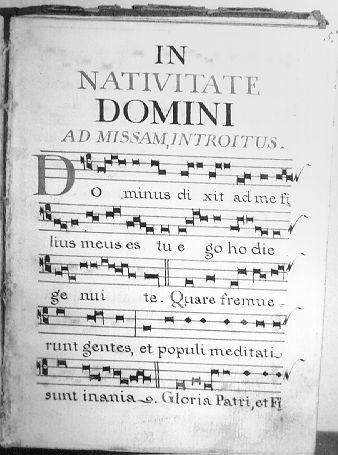 IN
NATIVITATE
DOMINI
AD MISSAM, INTROITUS.
Dominus dixit ad me fi
lius meus es tu ego hodie
genui te. Quare fremue-
runt gentes, et populi meditati
sunt inania. Gloria Patri, et Fi